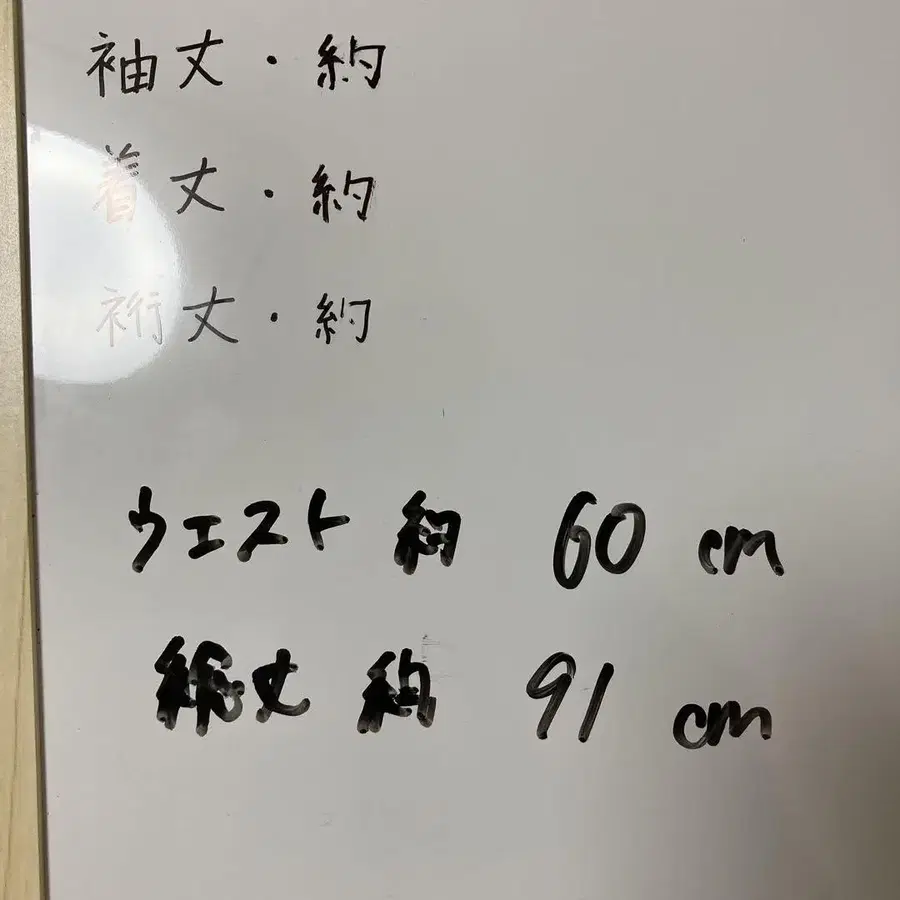 袖丈・約
着丈・約
裄丈・約
ウエスト 約 60 cm
総丈 約 91 cm